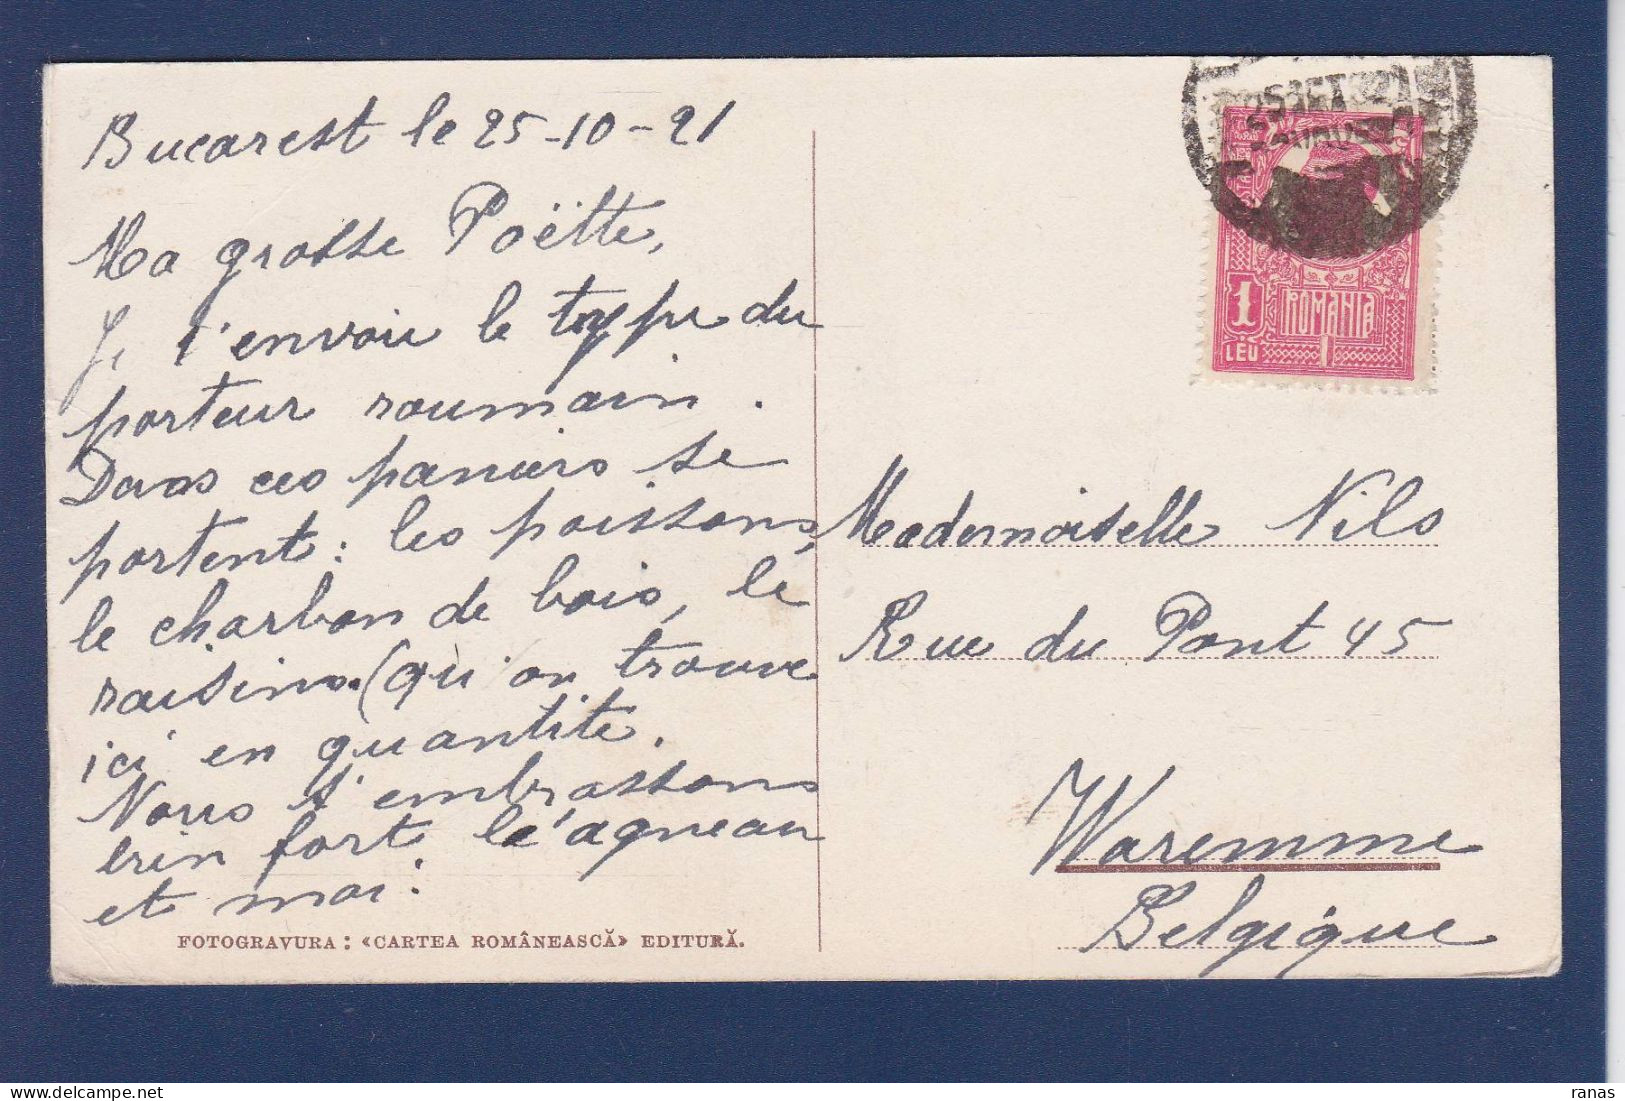 Bucarest le 25-10-21
Ma grosse Poëtte,
Je t'envoie le type du
porteur roumain.
Dans ces paniers se
portent: les poissons,
le charbon de bois, le
raisins. (qu'on trouve
ici en quantité.
Nous t'embrassons
bien fort l'agneau
et moi.
FOTOGRAVURA: «CARTEA ROMÂNEASCĂ» EDITURĂ.
1
LEU
ROMANIA
1
Mademoiselle Nils
Rue du Pont 45
Waremme
Belgique
ranas